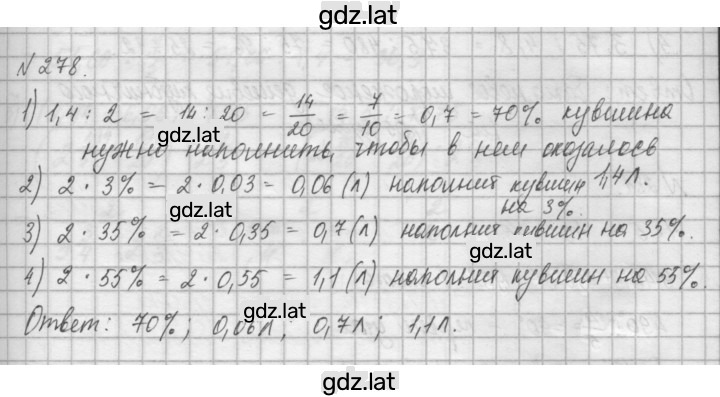 gdz.lat
N 278.
1) 1,4 : 2 = 14 : 20 = 14/20 = 7/10 = 0,7 = 70% кувшина
gdz.lat
нужно наполнить, чтобы в нем оказалось
1,4 л.
2) 2 · 3% = 2 · 0,03 = 0,06 (л) наполнит кувшин
на 3%.
gdz.lat
3) 2 · 35% = 2 · 0,35 = 0,7 (л) наполнит кувшин на 35%.
gdz.lat
4) 2 · 55% = 2 · 0,55 = 1,1 (л) наполнит кувшин на 55%.
gdz.lat
Ответ: 70%; 0,06 л; 0,7 л; 1,1 л.
gdz.lat